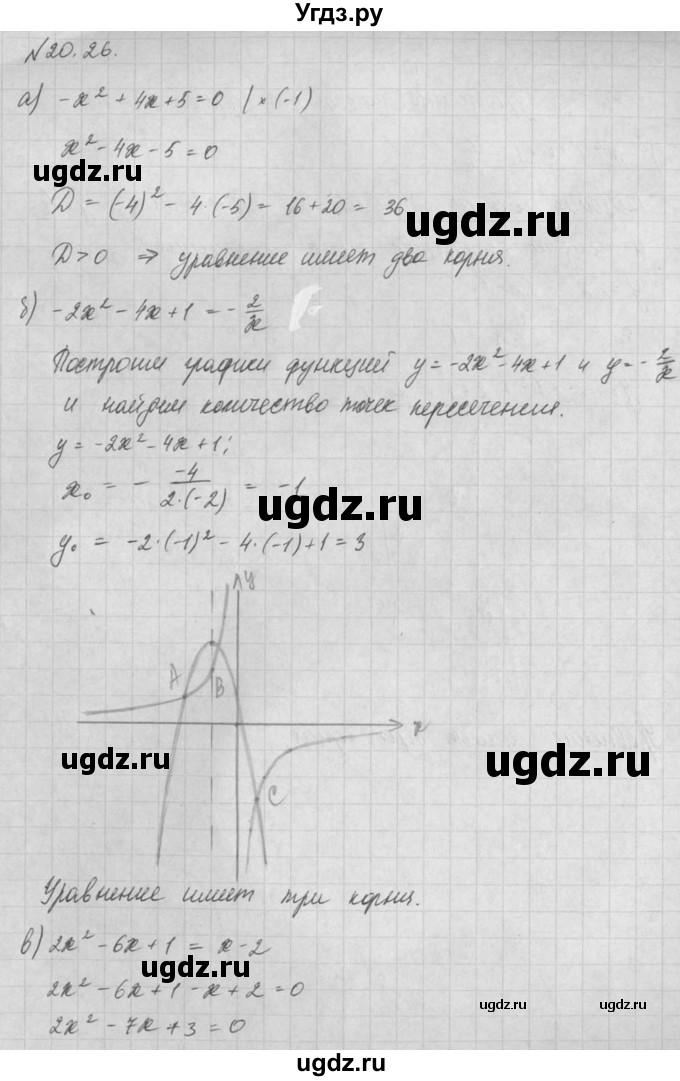 Угдз.ру
№20.26.
а) -x² + 4x + 5 = 0 | × (-1)
x² - 4x - 5 = 0
ugdz.ru
ugdz.ru
D = (-4)² - 4·(-5) = 16 + 20 = 36
ugdz.ru
D > 0 ⇒ уравнение имеет два корня.
б) -2x² - 4x + 1 = - 2/x
ugdz.ru
Построим графики функций y = -2x² - 4x + 1 и y = - 2/x
и найдём количество точек пересечения.
y = -2x² - 4x + 1;
x₀ = - -4/(2·(-2)) = -1
ugdz.ru
y₀ = -2·(-1)² - 4·(-1) + 1 = 3
y
A
B
x
ugdz.ru
ugdz.ru
C
Уравнение имеет три корня.
в) 2x² - 6x + 1 = x - 2
ugdz.ru
2x² - 6x + 1 - x + 2 = 0
ugdz.ru
ugdz.ru
2x² - 7x + 3 = 0
ugdz.ru